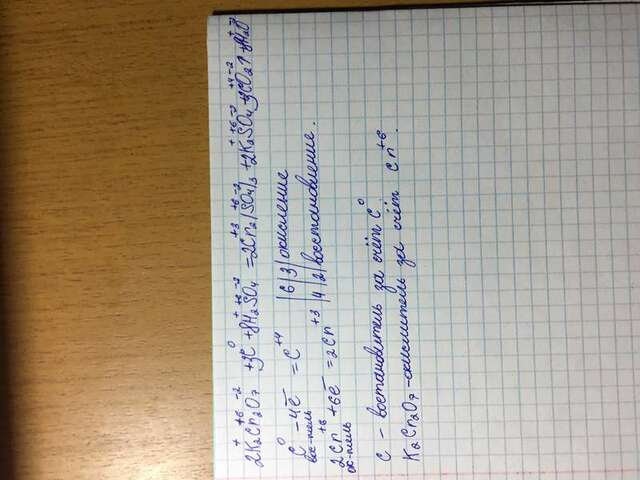 2K₂⁺Cr₂⁺⁶O₇⁻² + 3C⁰ + 8H₂⁺S⁺⁶O₄⁻² = 2Cr₂⁺³(S⁺⁶O₄⁻²)₃ + 2K₂⁺S⁺⁶O₄⁻² + 3C⁺⁴O₂⁻²↑ + 8H₂⁺O⁻²
C⁰ - 4e̅ = C⁺⁴ | 6 | 3 | окисление
вос-тель
2Cr⁺⁶ + 6e̅ = 2Cr⁺³ | 4 | 2 | восстановление.
ок-тель
C - востановитель за счёт C⁰
K₂Cr₂O₇ - окислитель за счёт Cr⁺⁶.